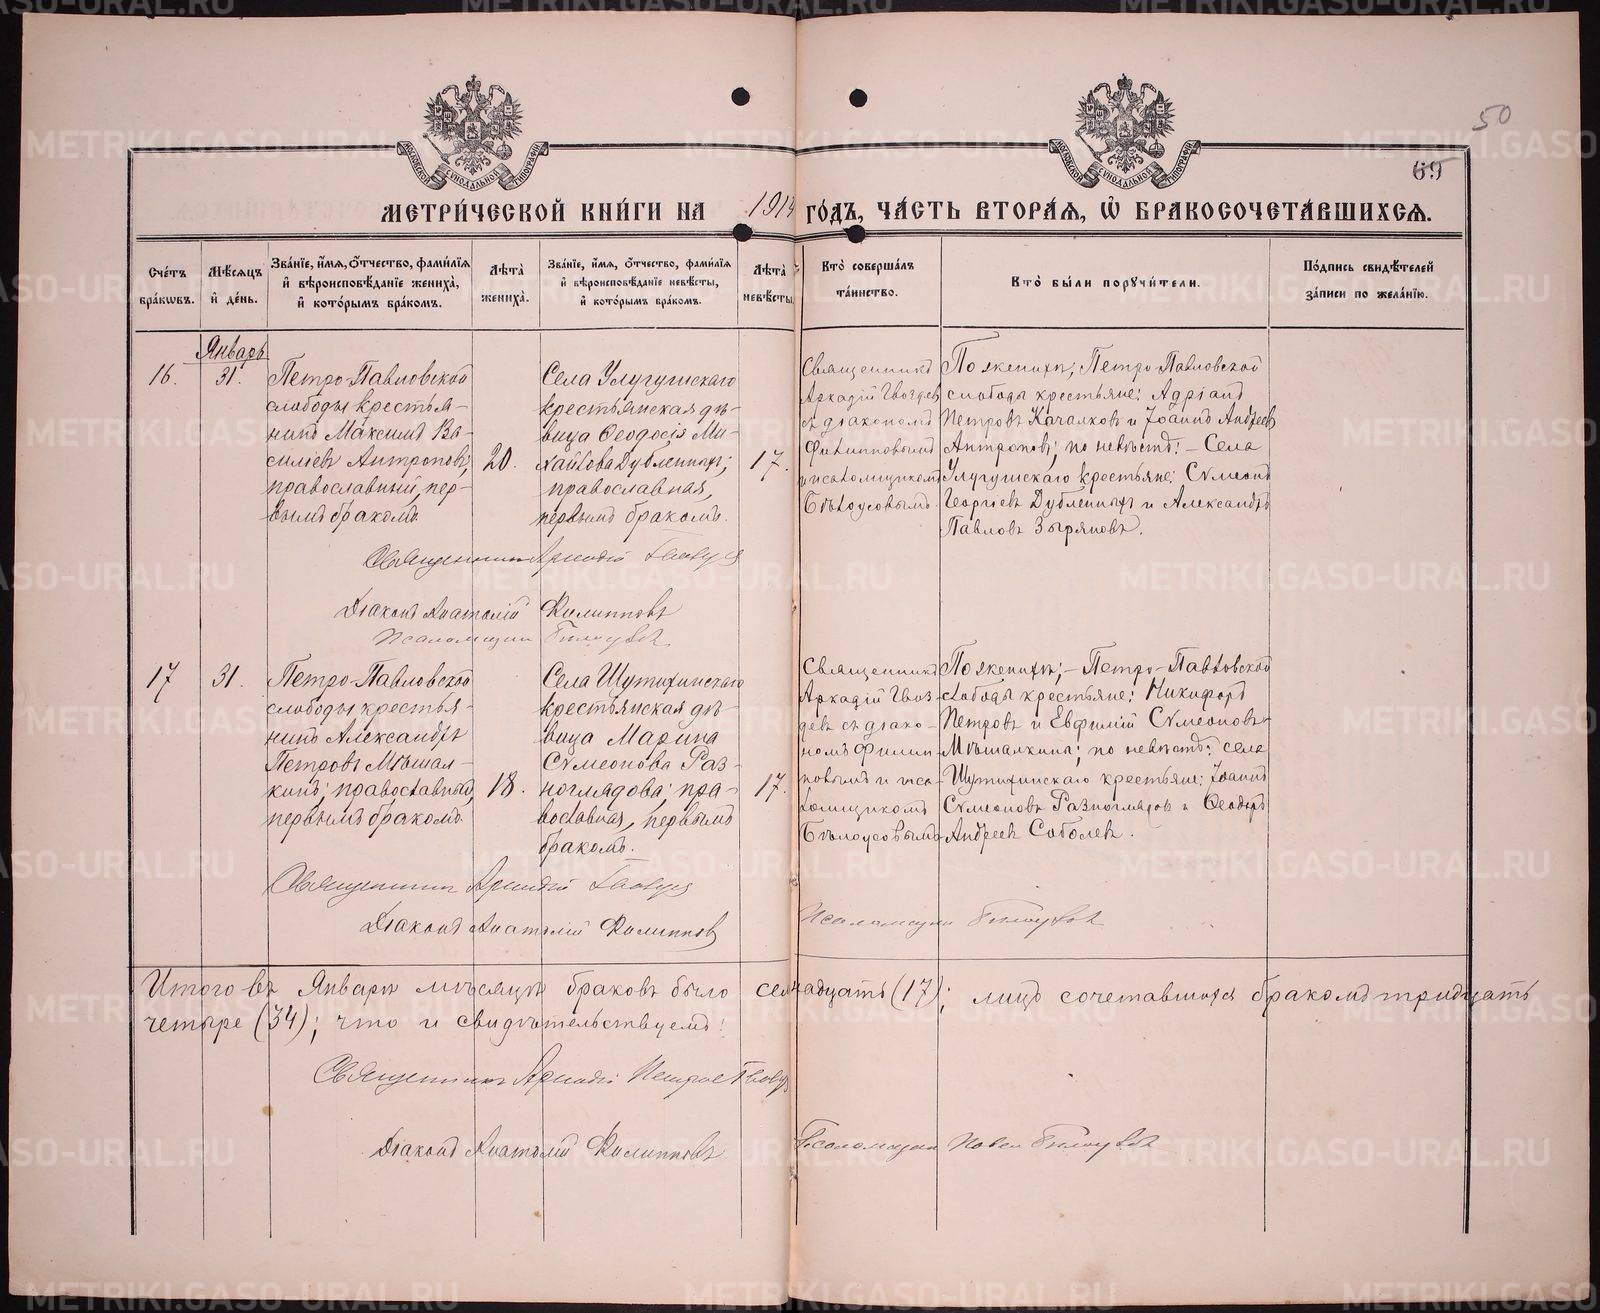 50
69
МЕТРИЧЕСКОЙ КНИГИ НА 1914 ГОДЪ, ЧАСТЬ ВТОРАЯ, Ѡ БРАКОСОЧЕТАВШИХСЯ.
Счетъ браковъ.
Мѣсяцъ и день.
Званіе, имя, отчество, фамилія и вѣроисповѣданіе жениха, и которымъ бракомъ.
Лѣта жениха.
Званіе, имя, отчество, фамилія и вѣроисповѣданіе невѣсты, и которымъ бракомъ.
Лѣта невѣсты.
Кто совершалъ таинство.
Кто были поручители.
Подпись свидѣтелей записи по желанію.
Январь
16.
31.
Петро-Павловской
слободы крестья-
нинъ Максимъ Ва-
силіевъ Антроповъ,
православный, пер-
вымъ бракомъ.
20.
Села Улугушскаго
крестьянская дѣ-
вица Ѳеодосія Ми-
хайлова Дубленныхъ;
православная,
первымъ бракомъ.
17.
Священникъ
Аркадій Гвоздев
съ діакономъ
Филипповымъ
и псаломщикомъ
Бѣлоусовымъ.
По женихѣ; Петро-Павловской
слободы крестьяне: Адріанъ
Петровъ Качалковъ и Іоаннъ Андреев
Антроповъ; по невѣстѣ: – Села
Улугушскаго крестьяне: Сѵмеонъ
Георгіевъ Дубленныхъ и Александръ
Павловъ Зыряновъ.
Священникъ Аркадій Гвоздев
Діаконъ Анатолій Филипповъ
Псаломщикъ Бѣлоусов
17
31.
Петро-Павловской
слободы крестья-
нинъ Александръ
Петровъ Мѣшал-
кинъ; православный,
первымъ бракомъ.
18.
Села Шутихинскаго
крестьянская дѣ-
вица Марина
Сѵмеонова Раз-
ноглядова; пра-
вославная, первымъ
бракомъ.
17.
Священникъ
Аркадій Гвоз-
девъ съ діако-
номъ Филип-
повымъ и пса-
ломщикомъ
Бѣлоусовымъ
По женихѣ; – Петро-Павловской
слободы крестьяне: Никифоръ
Петровъ и Евфимій Сѵмеоновъ
Мѣшалкины; по невѣстѣ: села
Шутихинскаго крестьяне: Іоаннъ
Сѵмеоновъ Разноглядовъ и Ѳеодоръ
Андреевъ Соболевъ.
Священникъ Аркадій Гвоздев
Діаконъ Анатолій Филиппов
Псаломщикъ Бѣлоусов
Итого въ Январѣ мѣсяцѣ браковъ было семнадцать (17); лицъ сочетавшихся бракомъ тридцать
четыре (34); что и свидѣтельствуемъ:
Священникъ Аркадій Петров Гвоздев
Діаконъ Анатолій Филипповъ
Псаломщикъ Павел Бѣлоусов
METRIKI.GASO-URAL.RU